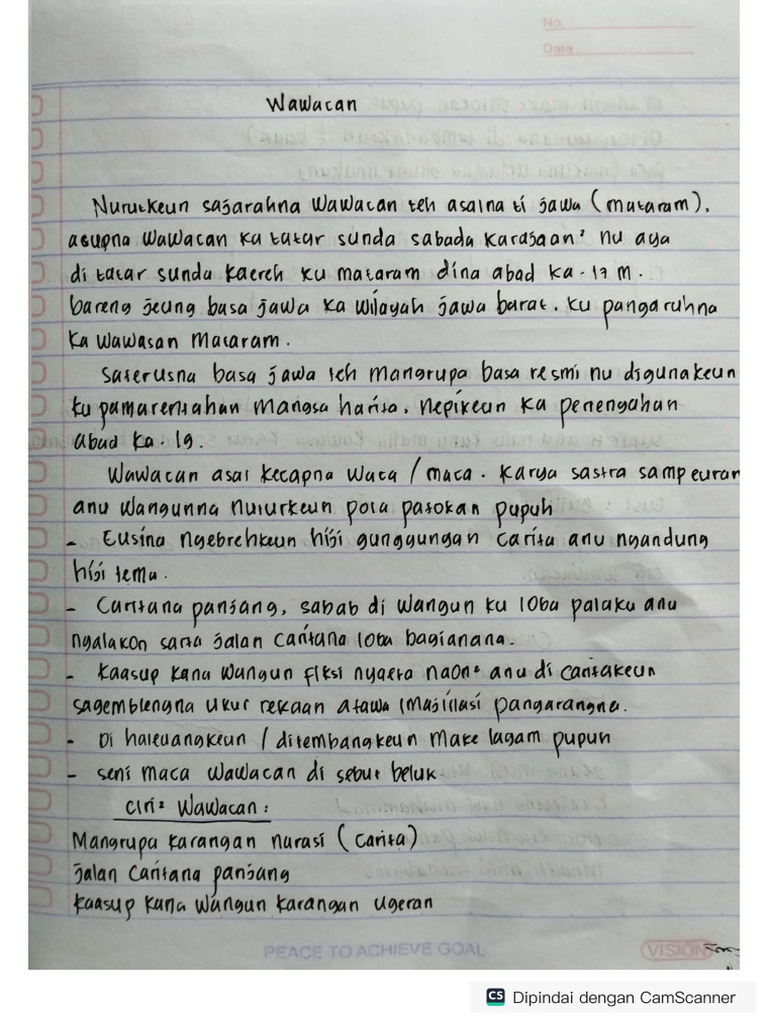 No.
Date.
Wawacan
Nurutkeun sajarahna wawacan teh asalna ti jawa (mataram).
asupna wawacan ka tatar sunda sabada karajaan² nu aya
di tatar sunda kaereh ku mataram dina abad ka-17 m.
bareng jeung basa jawa ka wilayah jawa barat. ku pangaruhna
ka wawasan Mataram.
Saterusna basa jawa teh mangrupa basa resmi nu digunakeun
ku pamarentahan mangsa harita, nepikeun ka penengahan
abad ka-19.
Wawacan asal kecapna waca / maca. Karya sastra sampeuran
anu wangunna nuturkeun pola patokan pupuh
- Eusina ngebrehkeun hiji gunggungan carita anu ngandung
hiji tema.
- Caritana panjang, sabab di wangun ku loba palaku anu
ngalakon sarta jalan caritana loba bagianana.
- kaasup kana wangun fiksi nyaeta naon² anu di caritakeun
sagemblengna ukur rekaan atawa imajinasi pangarangna.
- Di haleuangkeun / ditembangkeun make lagam pupuh
- seni maca wawacan di sebut beluk.
Ciri² Wawacan :
Mangrupa karangan narasi (carita)
jalan caritana panjang
kaasup kana wangun karangan ugeran
PEACE TO ACHIEVE GOAL
VISION
CS Dipindai dengan CamScanner